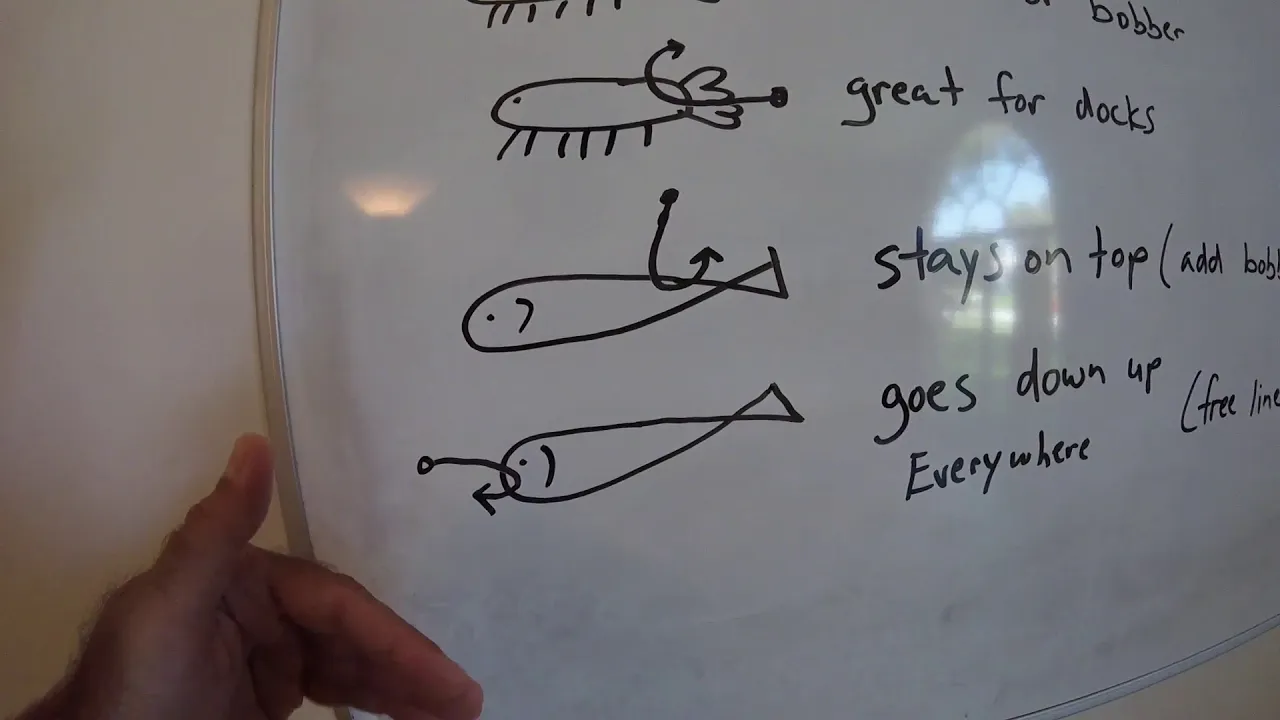 bobber
great for docks
stays on top (add
goes down up (free line
Everywhere